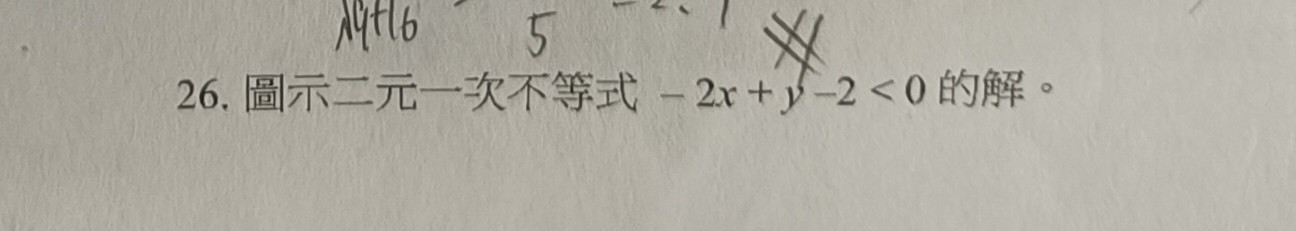 √9+16
5
26. 圖示二元一次不等式 – 2x + y –2 < 0 的解。